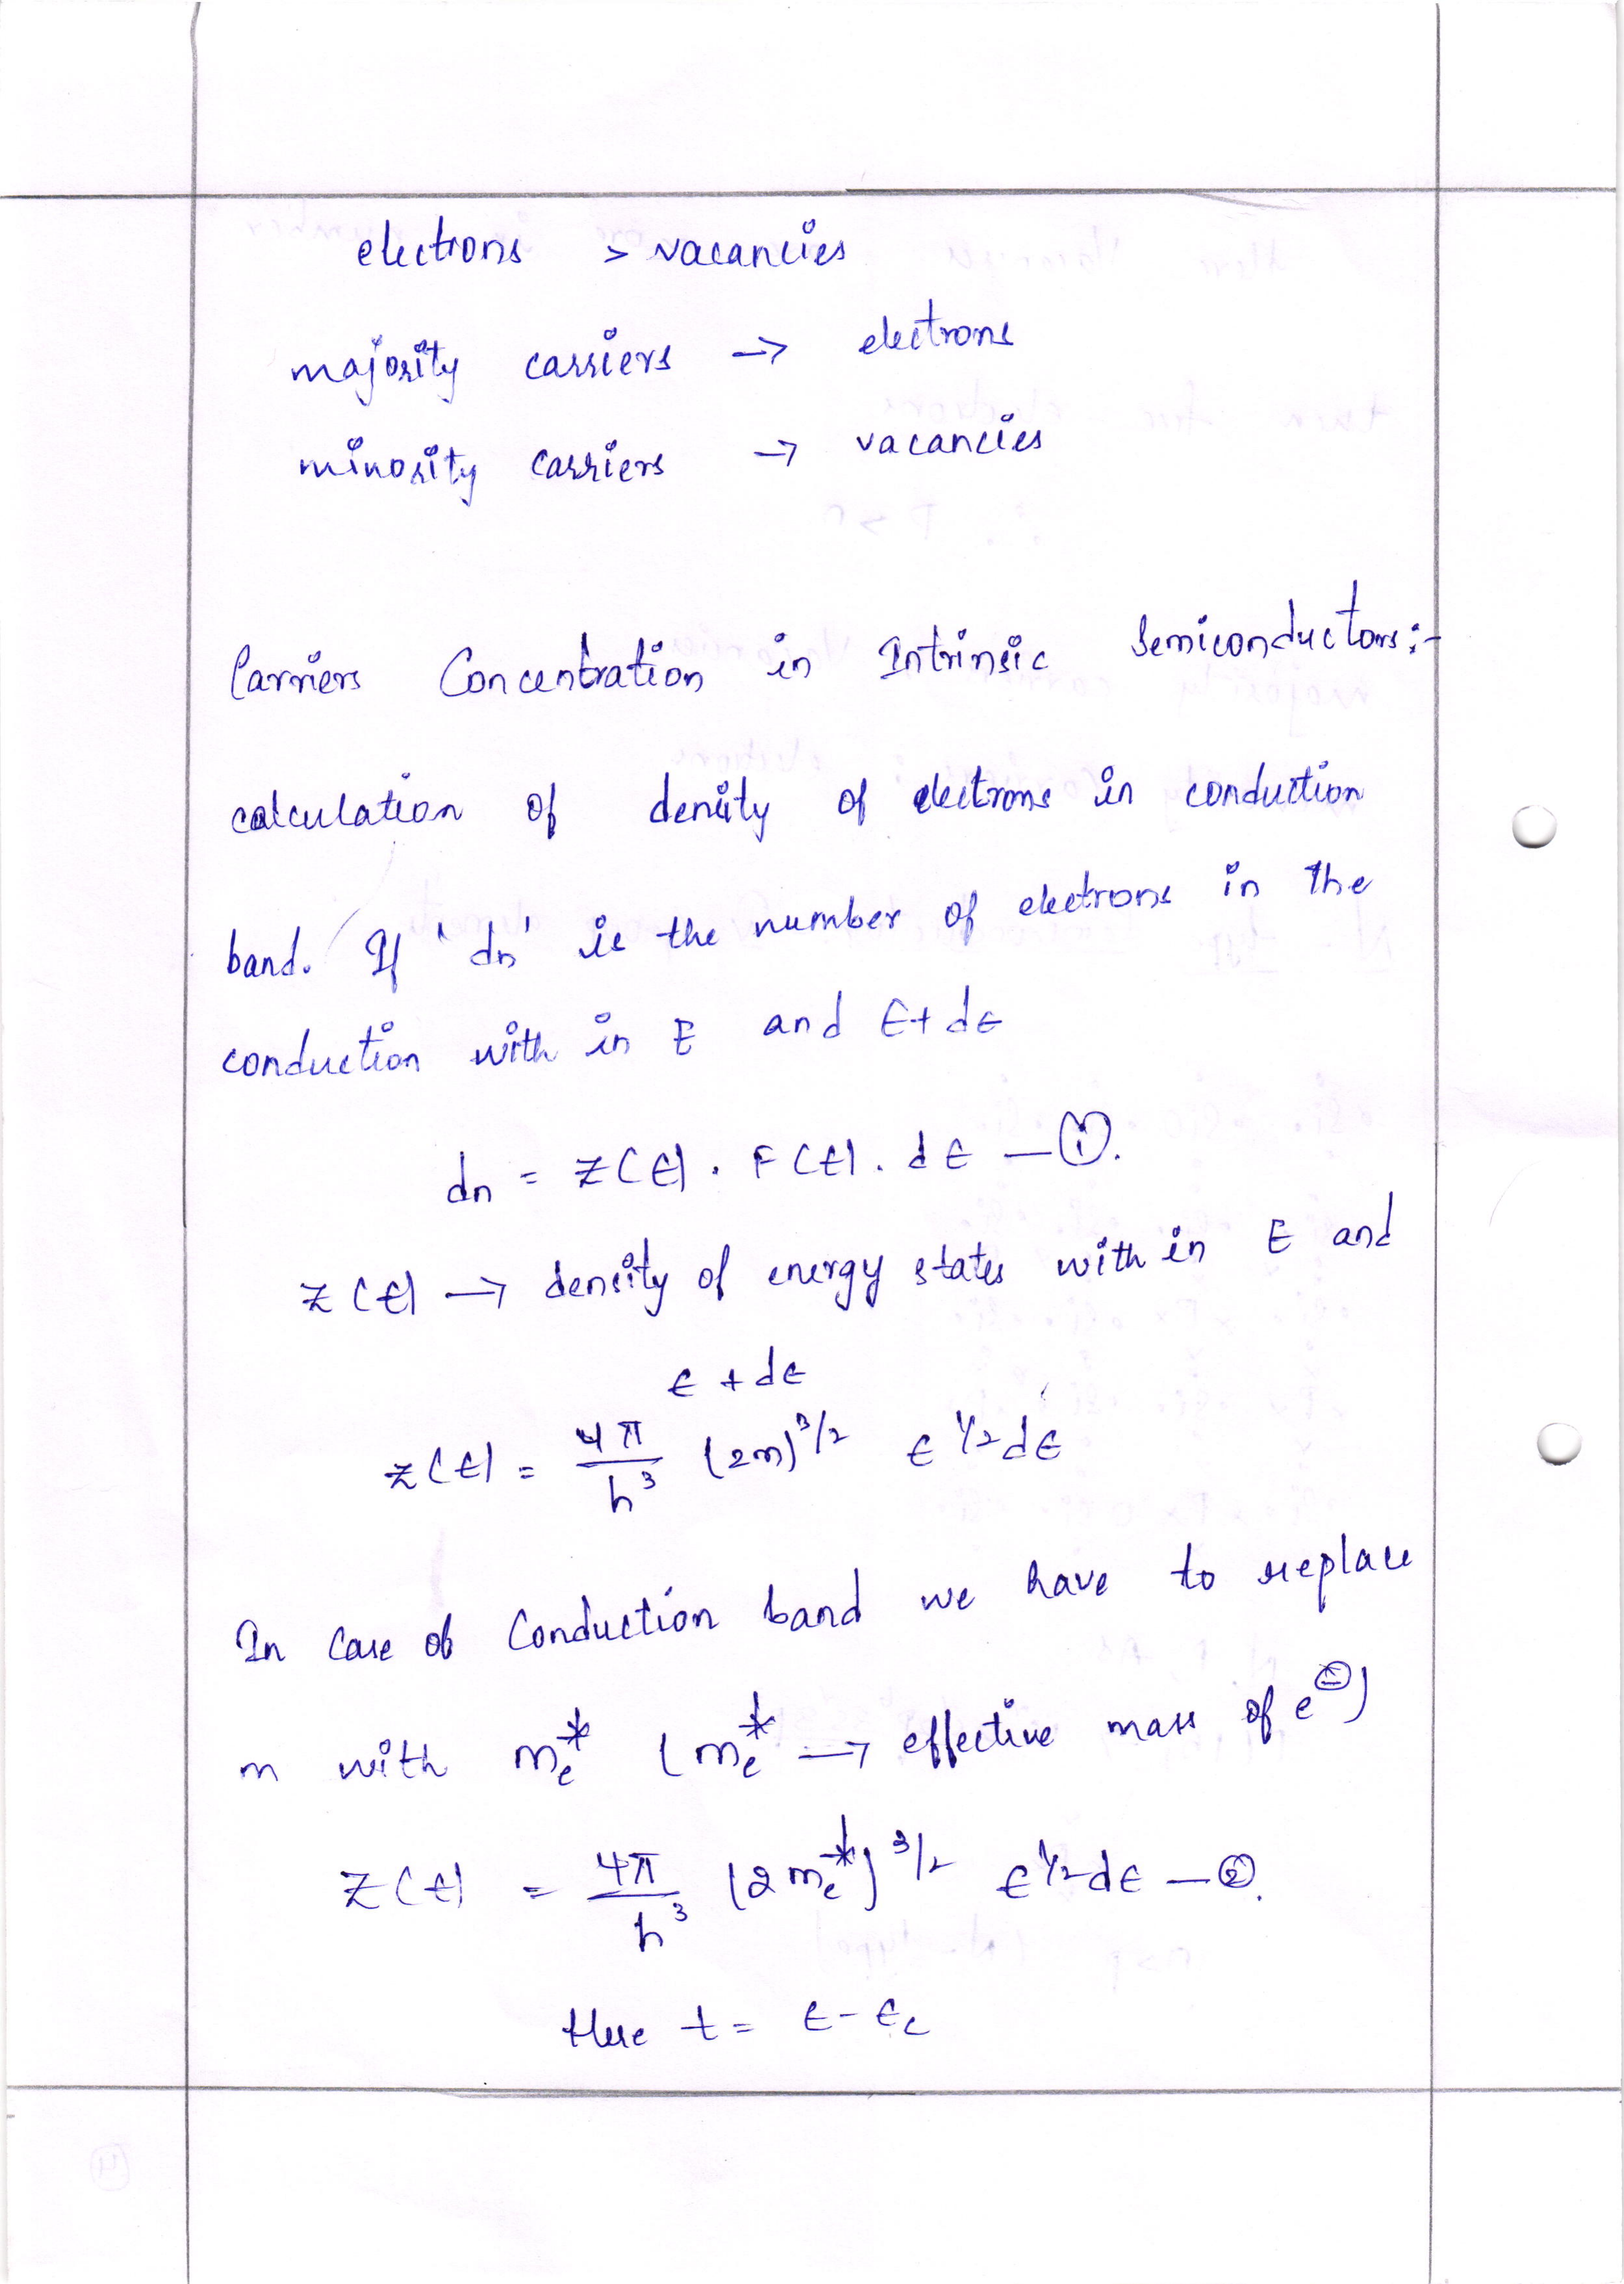 electrons > vacancies
majority carriers → electrons
minority carriers → vacancies
Carriers Concentration in Intrinsic Semiconductors:-
calculation of density of electrons in conduction
band. If 'dn' is the number of electrons in the
conduction with in E and E+dE
dn = Z(E) . F(E) . dE — ①.
Z(E) → density of energy states with in E and
E + dE
Z(E) = 4π/h³ (2m)^3/2 E^1/2 dE
In Case of Conduction band we have to replace
m with mₑ* (mₑ* → effective mass of e⊖)
Z(E) = 4π/h³ (2mₑ*)^3/2 E^1/2 dE — ②.
Here E = E - Ec